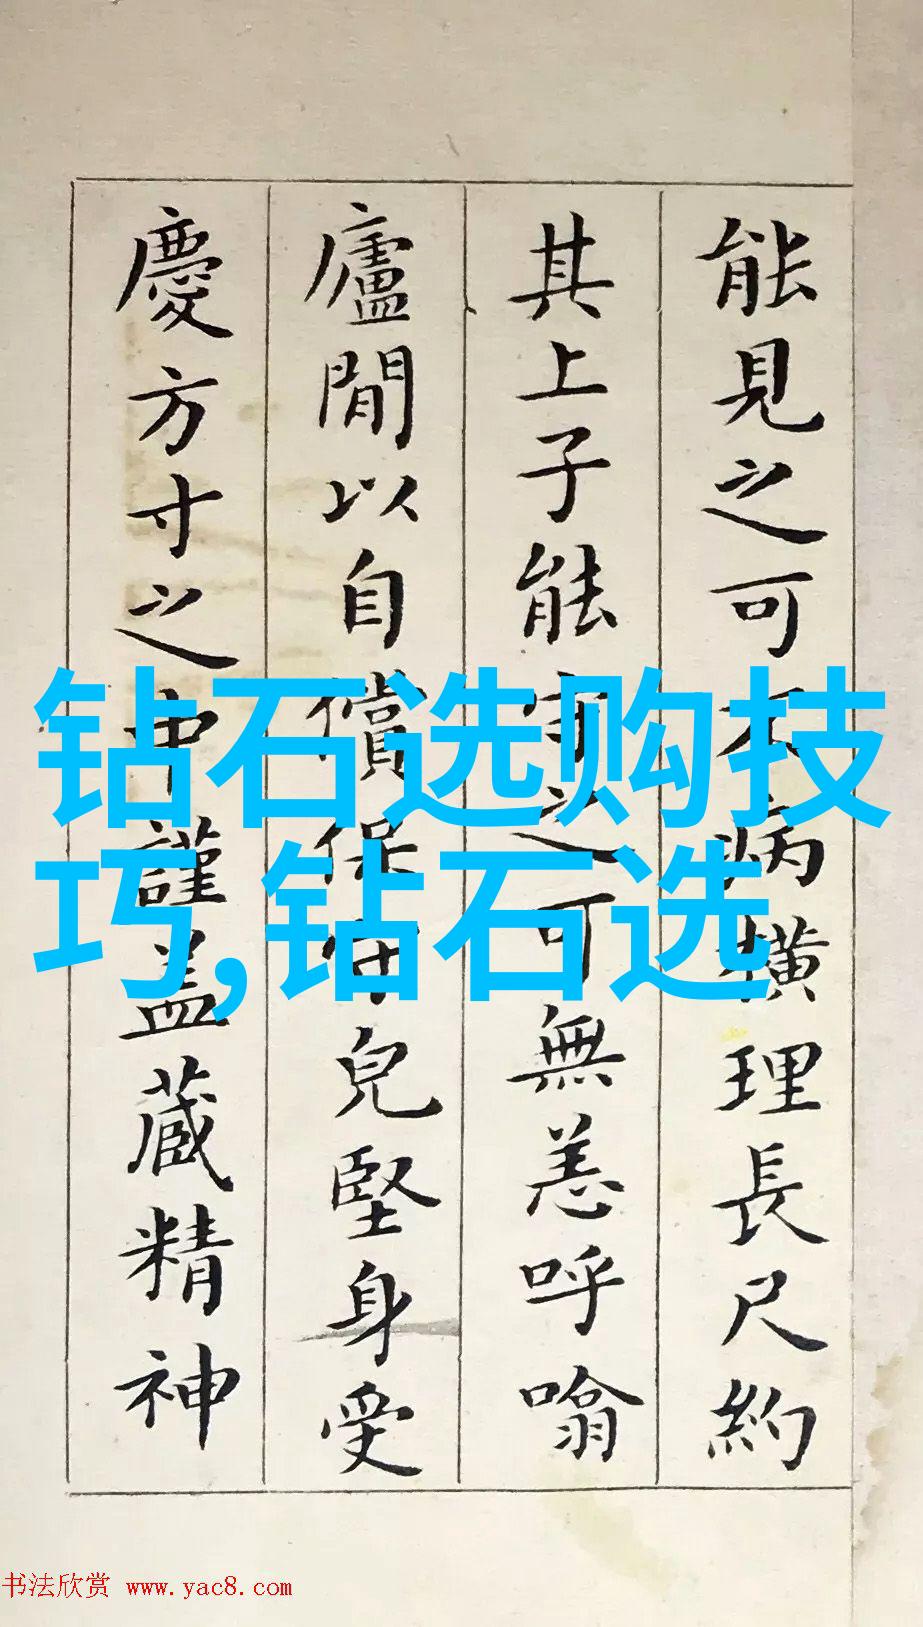 能見之可不病橫理長尺約
其上子能守之可無恙呼噏
廬閒以自償保守兒堅身受
慶方寸之中謹蓋藏精神
钻石选购技
巧,钻石选
书法欣赏 www.yac8.com